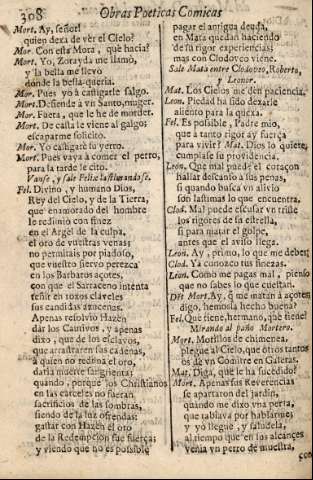 308 Obras Poeticas Comicas
Mort. Ay, señor!
quien dexa de vèr el Cielo?
Mor. Con esta Mora, què hacia?
Mort. Yo, Zorayda me llamò,
y la bella me llevò
donde la bella queria.
Mor. Pues yo à castigarle salgo.
Mort. Desiende à vn Santo, muger.
Mor. Fuera, que le he de morder.
Mort. De casta le viene al galgo;
escaparme solicito.
Mor. Yo castigarè su yerro.
Mort. Pues vaya à comer el perro,
para la tarde le cito.
Vanse, y sale Felix lastimandose.
Fel. Divino, y humano Dios,
Rey del Cielo, y de la Tierra,
que enamorado del hombre
le redimiò con fineza
en el Argèl de la culpa,
el oro de vuestras venas;
no permitais por piadoso,
que vuestro siervo perezca
en los Barbaros açotes,
con que el Sarraceno intenta
teñir en toxos claveles
sus candidas açucenas.
Apenas resolviò Hazèn
dàr los Cautivos, y apenas
dixo, que de los esclavos,
que arrastraren sus cadenas,
à quien no redima el oro,
darìa muerte sangrienta;
quando, porque los Christianos
en las carceles no fueran
sacrificios de las sombras,
siendo de la luz ofrendas;
gastar con Hazèn el oro
de la Redempcion fue fuerça;
y viendo que no es possible
pagar el antigua deuda,
en Mata quedan haciendo
de su rigor experiencias;
mas con Clodoveo viene.
Sale Mata entre Clodoveo, Roberta,
y Leonor.
Mat. Los Cielos me den paciencia.
Leon. Piedad ha sido dexarle
aliento para la quexa.
Fel. Es possible, Padre mio,
que à tanto rigor ay fuerça
para vivir? Mat. Dios lo quiete,
cumplase su providencia.
Leon. Què mal puede el coraçon
hallar descanso à sus penas,
si quando busca vn alivio
son lastimas lo que encuentra.
Clod. Mal puede escusar vn triste
los rigores de su estrella,
si para matar el golpe,
antes que el aviso llega.
Leon. Ay, primo, lo que me debes!
Clod. Ya conozco tus finezas.
Leon. Como me pagas mal, pienso
que no sabes lo que cuestan.
Dèt. Mort. Ay, q̃ me matàn à açotes,
digo, hemosla hecho buena?
Fel. Què tiene, hermano, què tiene?
Mirando al paño Mortero.
Mort. Morillos de chimenea,
plegue al Cielo, que otros tantos
os dè vn Comitre en Galeras.
Mat. Diga, què le ha sucedido?
Mort. Apenas sus Reverencias
se apartaron del jardin,
quando me dixo vna perra,
que tablava por hablarme;
y yo lleguè, y saludela,
al tiempo que en los alcançes
venìa vn perro de muestra,
con